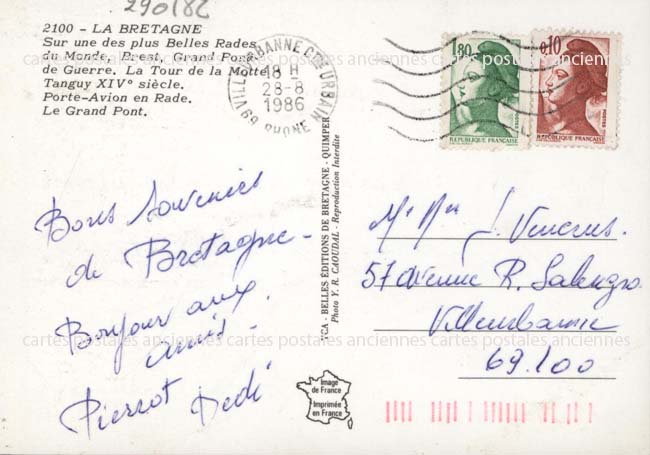 290182
2100 - LA BRETAGNE
Sur une des plus Belles Rades
du Monde, Brest, Grand Port
de Guerre. La Tour de la Motte
Tanguy XIV° siècle.
Porte-Avion en Rade.
Le Grand Pont.
69 VILLEURBANNE CD URBAIN
18 H
28-8
1986
RHONE
1,80
REPUBLIQUE FRANCAISE
0,10
POSTES
REPUBLIQUE FRANCAISE
Bons Souvenirs
de Bretagne -
Bonjour aux
amis -
Pierrot Dédé
- BELLES ÉDITIONS DE BRETAGNE - QUIMPER
Photo Y. R. CAOUDAL - Reproduction Interdite
Image
de France
Imprimée
en France
Mr Mme J.
57 avenue R. Salengro
Villeurbanne
69.100
cartes postales anciennes cartes postales anciennes cartes postales anciennes